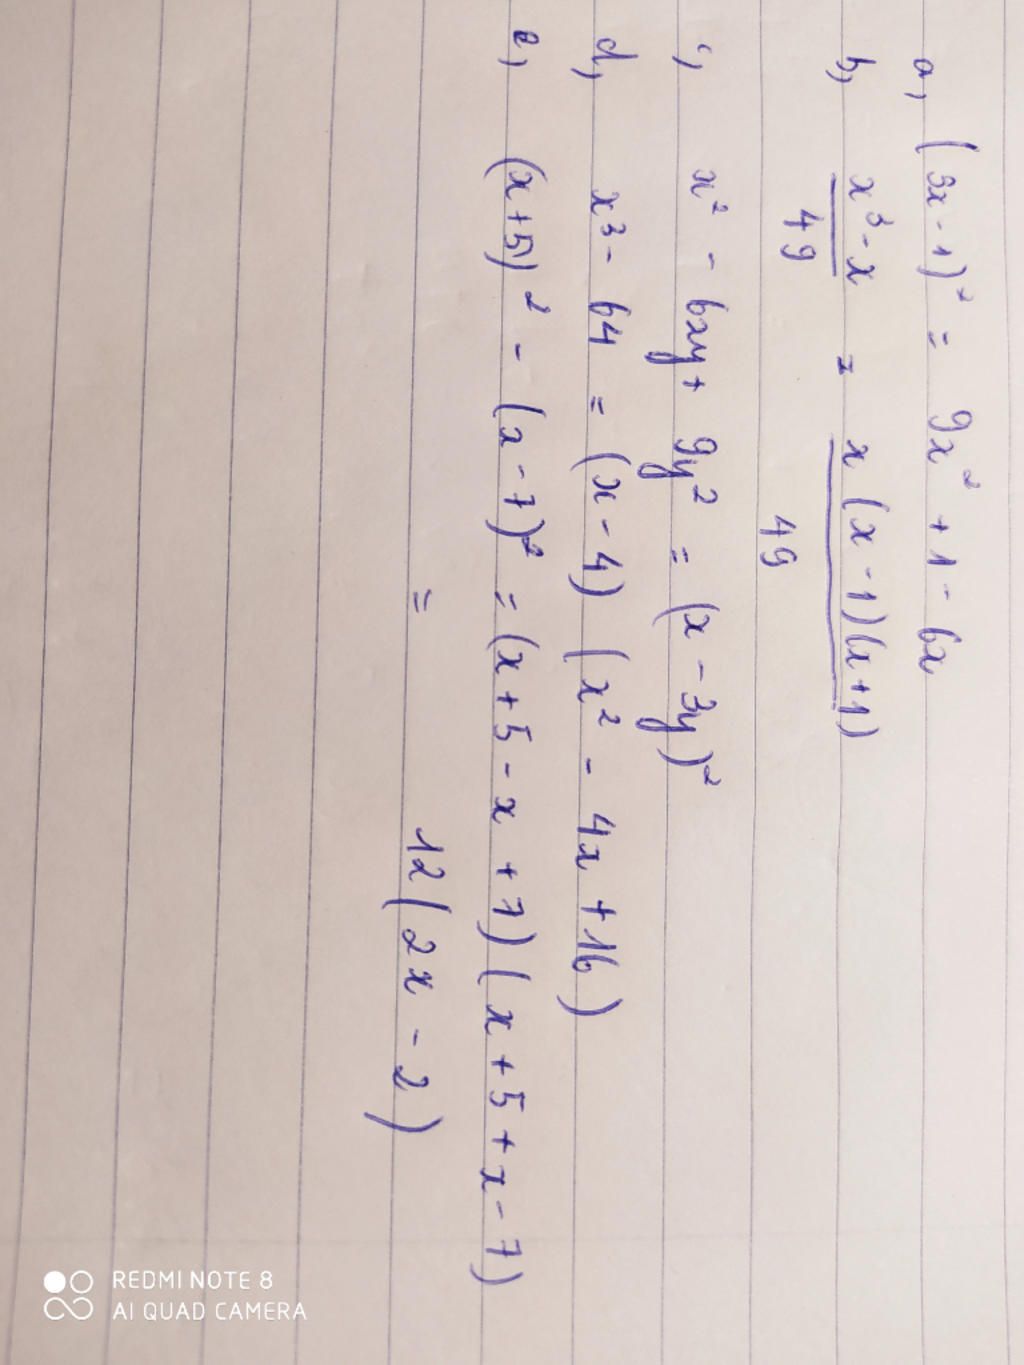 a, (3x - 1)² = 9x² + 1 - 6x
b, x³ - x = x (x - 1)(x + 1)
49 49
c, x² - 6xy + 9y² = (x - 3y)²
d, x³ - 64 = (x - 4) (x² - 4x + 16)
e, (x + 5)² - (x - 7)² = (x + 5 - x + 7) (x + 5 + x - 7)
= 12 (2x - 2)
REDMI NOTE 8
AI QUAD CAMERA